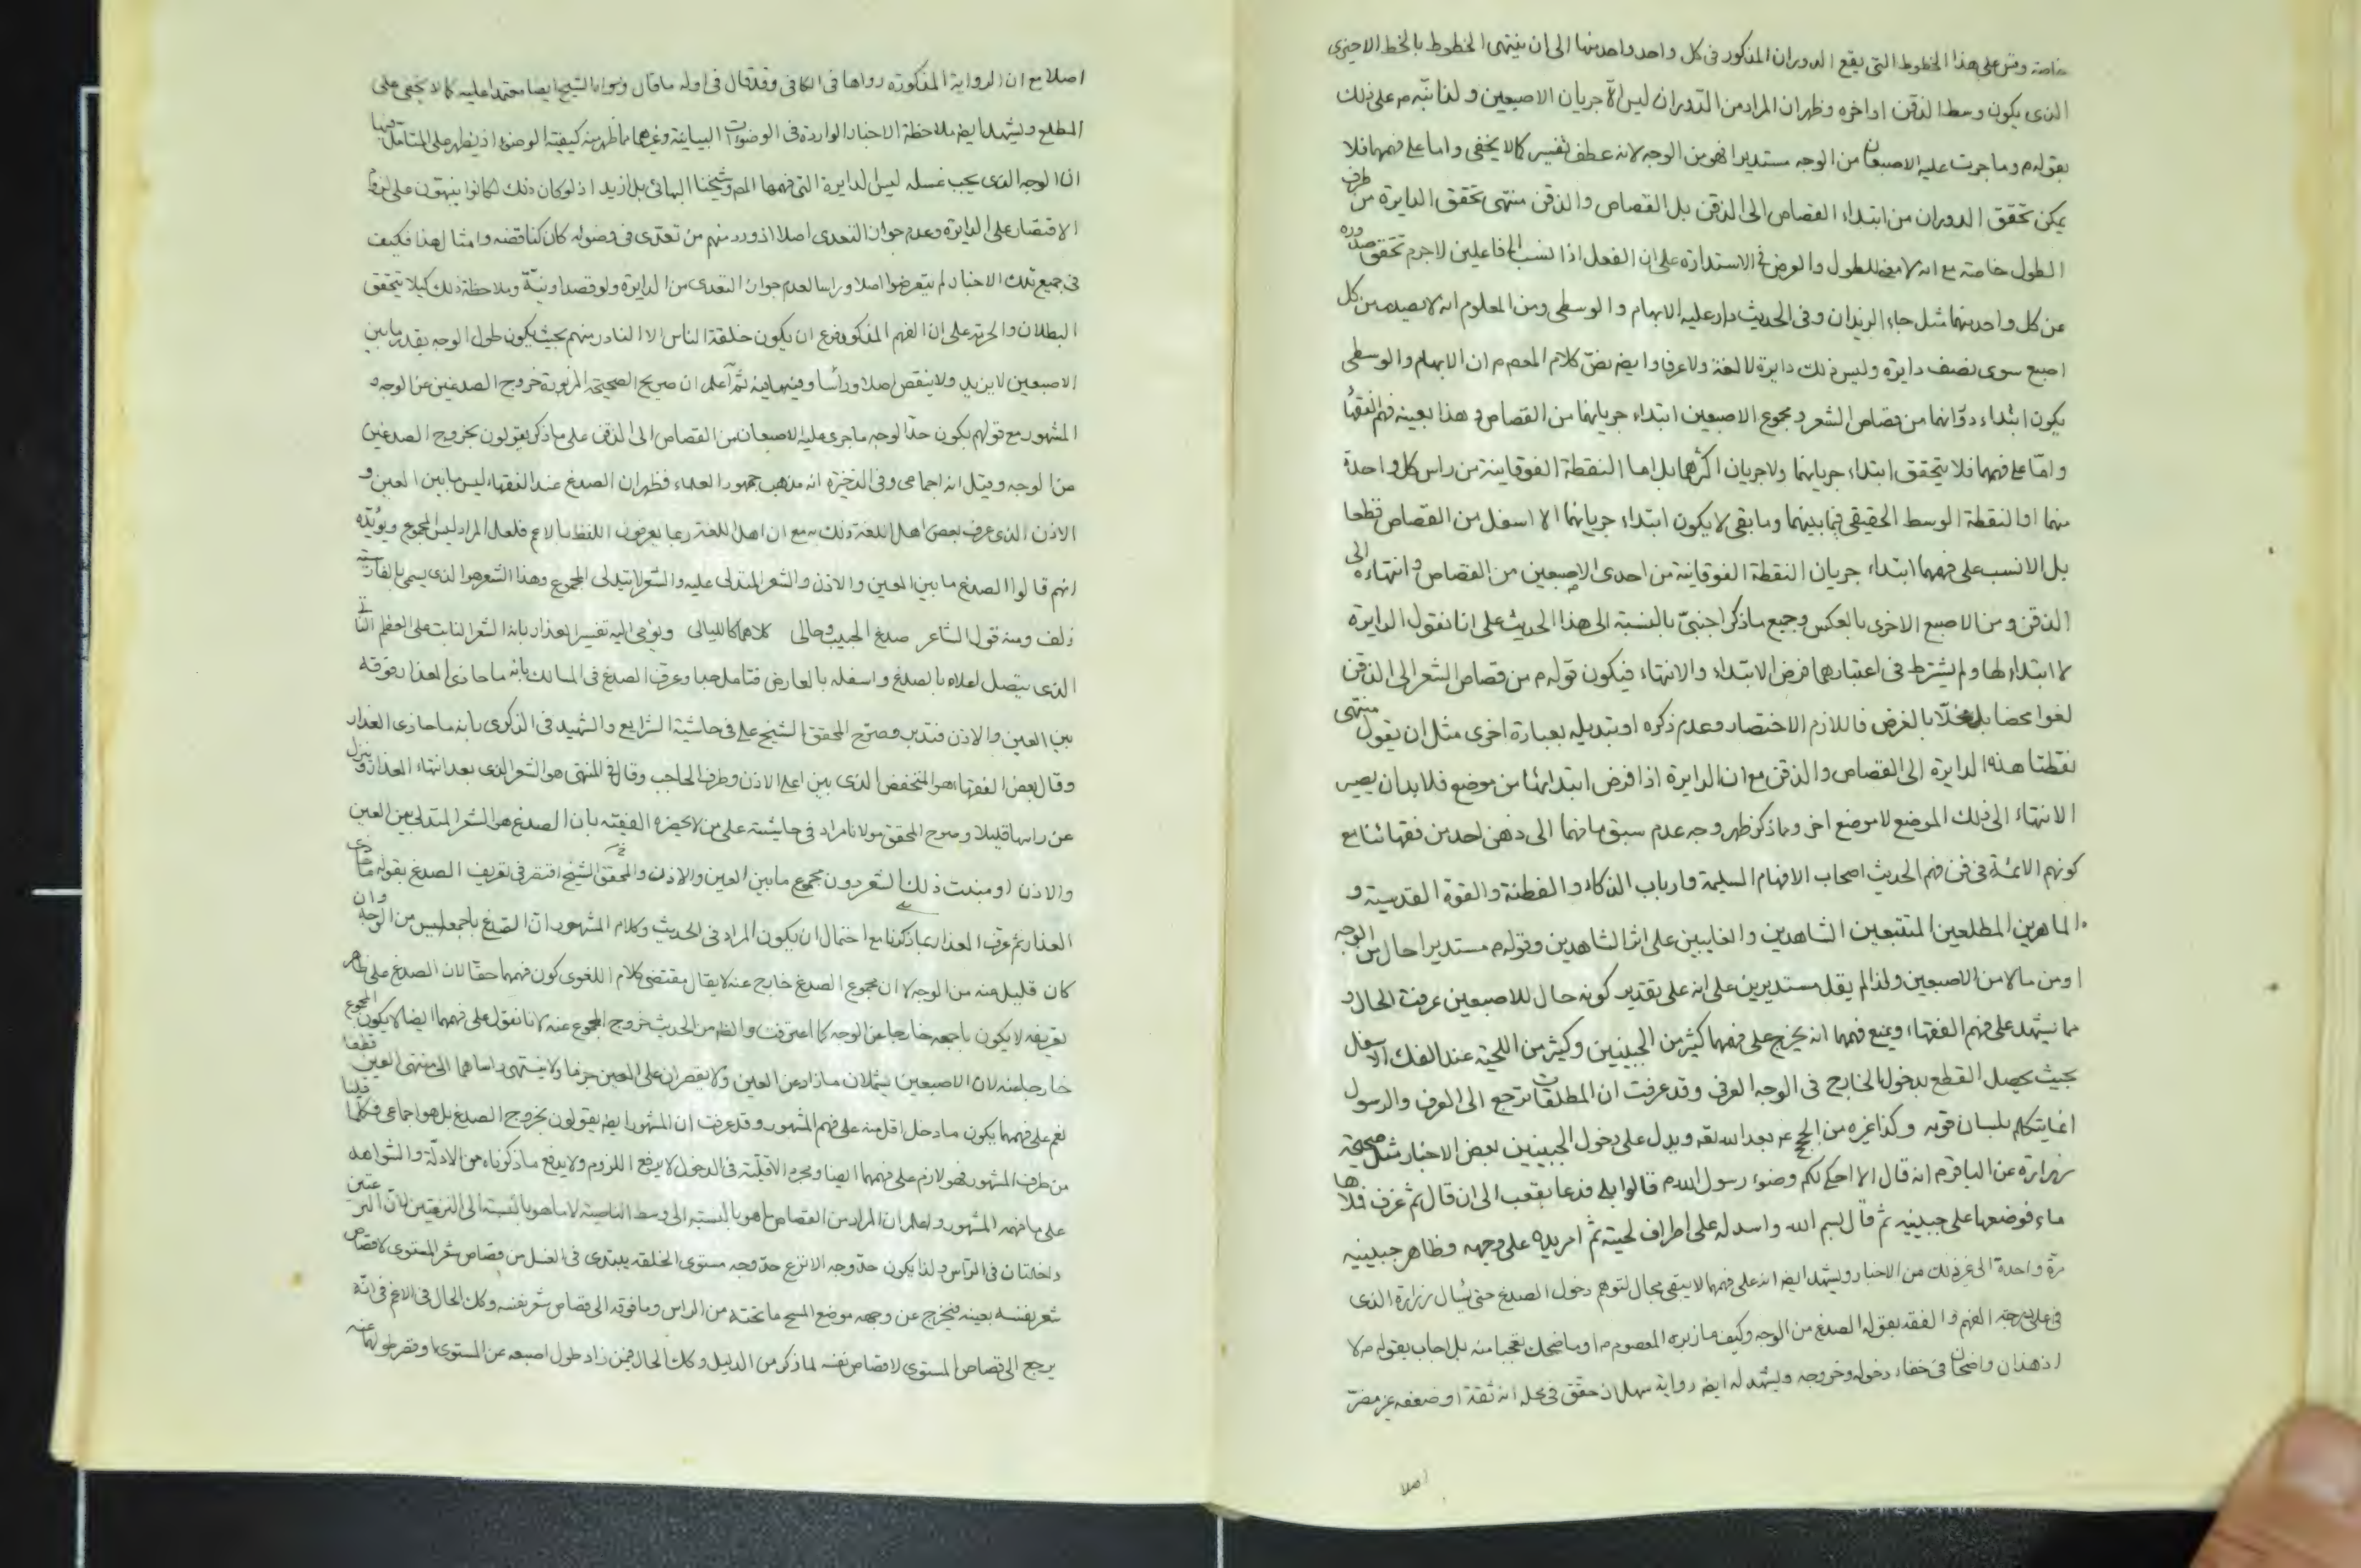 خاصة وقس على هذا الخطوط التى يقع الدوران المذكور فى كل واحد واحد منها الى ان ينتهى الخطوط بالخط الاخير
الذى يكون وسط الذقن اواخره وظهر ان المراد من الدوران ليس الا جريان الاصبعين ولذا نبه م على ذلك
بقوله م وما جرت عليه الاصبعان من الوجه مستديرا فهو من الوجه لانه عطف تفسير كما لا يخفى واما على فهمهما فلا
يمكن تحقق الدوران من ابتداء القصاص الى الذقن بل القصاص والذقن منتهى تحقق الدايرة من طرف
الطول خاصة مع انه لا معنى للطول والعرض فى الاستدارة على ان الفعل اذا نسب الى فاعلين لا جرم تحقق صدوره
عن كل واحد منهما مثل جاء الزيدان وفى الحديث دار عليه الابهام والوسطى ومن المعلوم انه لا يصدر من كل
اصبع سوى نصف دايرة وليس ذلك دايرة لا لغة ولا عرفا وايضا نص كلام المعصوم م ان الابهام والوسطى
يكون ابتداء دورانهما من قصاص الشعر ومجموع الاصبعين ابتداء جريانهما من القصاص وهذا بعينه فهم الفقهاء
واما على فهمهما فلا يتحقق ابتداء جريانهما ولا جريان اكثرهما بل اما النقطة الفوقانية من راس كل واحدة
منهما او النقطة الوسط الحقيقى فيما بينهما وما بقى لا يكون ابتداء جريانهما الا اسفل من القصاص قطعا
بل الانسب على فهمهما ابتداء جريان النقطة الفوقانية من احدى الاصبعين من القصاص وانتهاءه الى
الذقن ومن الاصبع الاخرى بالعكس وجميع ما ذكر اجنبى بالنسبة الى هذا الحديث على انا نقول الدايرة
لا ابتداء لها ولم يشترط فى اعتبارهما فرض الابتداء والانتهاء فيكون قوله م من قصاص الشعر الى الذقن
لغوا محضا بل مخلا بالغرض فاللازم الاختصار وعدم ذكره او تبديله بعبارة اخرى مثل ان يقول منتهى
نقطتا هذه الدايرة الى القصاص والذقن مع ان الدايرة اذا فرض ابتدائها من موضع فلا بد ان يصير
الانتهاء الى ذلك الموضع لا موضع اخر ومما ذكر ظهر وجه عدم سبق ما فهما الى ذهن احد من فقهائنا مع
كونهم الائمة فى فن فهم الحديث اصحاب الافهام السليمة وارباب الذكاء والفطنة والقوة القدسية و
الماهرين المطلعين المتتبعين الشاهدين والغايبين على اثر الشاهدين وقوله م مستديرا حال من الوجه
او من ما لا من الاصبعين ولذا لم يقل مستديرين على انه على تقدير كونه حال للاصبعين عرفت الحال و
مما يشهد على فهم الفقهاء ويمنع فهمهما انه يخرج على فهمهما كثير من الجبينين وكثير من اللحية عند الفك الاسفل
بحيث يحصل القطع بدخول الخارج فى الوجه العرفى وقد عرفت ان المطلقات ترجع الى العرف والرسول
انما يتكلم بلسان قومه وكذا غيره من الحجج ويدل على دخول الجبينين بعض الاخبار مثل صحيحة
زرارة عن الباقر م انه قال الا احكى لكم وضوء رسول الله م قالوا بلى فدعا بقعب الى ان قال ثم غرف فملاها
ماء فوضعها على جبينيه ثم قال بسم الله واسدله على اطراف لحيته ثم امر يده على وجهه وظاهر جبينيه
مرة واحدة الى غير ذلك من الاخبار ويشهد ايضا انه على فهمهما لا يبقى مجال لتوهم دخول الصدغ حتى يسال زرارة الذى
فى على درجة الفهم والفقه بقوله الصدغ من الوجه وكيف ما زبره المعصوم م او ما ضحك تعجبا منه بل اجاب بقوله م لا
اذ هذان واضحان فى خفاء دخوله وخروجه ويشهد له ايضا رواية سهل ان حقق فى محله انه ثقة او ضعفه غير مضر
اصلا
اصلا مع ان الرواية المذكورة رواها فى الكافى وقد قال فى اوله ما قال الشيخ ايضا معتمدا عليه كما لا يخفى على
المطلع ويشهد ايضا ملاحظة الاخبار الواردة فى الوضوءات البيانية وغيرها مما ظهر منه كيفية الوضوء اذ يظهر على المتامل فيها
ان الوجه الذى يجب غسله ليس الدايرة التى فهمها المص وشيخنا البهائى بل ازيد اذ لو كان ذلك لكانوا ينبهون على لزوم
الاقتصار على الدايرة وعدم جواز التعدى اصلا اذ ورد منهم من تعدى فى وضوئه كان كناقضه وامثال هذا فكيف
فى جميع تلك الاخبار لم يتعرضوا اصلا وراسا لعدم جواز التعدى من الدايرة ولو قصدا ونية وملاحظة ذلك كيلا يتحقق
البطلان والحرمة على ان الفهم المذكور فرع ان يكون خلقة الناس الا النادر منهم بحيث يكون طول الوجه بقدر ما بين
الاصبعين لا يزيد ولا ينقص اصلا وراسا وفيه ما فيه ثم اعلم ان صريح الصحيحة المزبورة خروج الصدغين عن الوجه و
المشهور مع قولهم بكون حد الوجه ما جرى عليه الاصبعان من القصاص الى الذقن على ما ذكر يقولون بخروج الصدغين
من الوجه وقيل انه اجماعى وفى الذخيرة انه مذهب جمهور العلماء فظهر ان الصدغ عند الفقهاء ليس ما بين العين و
الاذن الذى عرف بعض اهل اللغة ذلك به مع ان اهل اللغة ربما يعرفون اللفظ بالاعم فلعل المراد ليس المجموع ويؤيده
انهم قالوا الصدغ ما بين العين والاذن والشعر المتدلى عليه والشعر لا يتدلى المجموع وهذا الشعر هو الذى يسمى بالفارسية
زلف ومنه قول الشاعر صدغ الحبيب وحالى كلاهما كالليالى ويومى اليه تفسير العذار بانه الشعر النابت على العظم الناتى
الذى يتصل اعلاه بالصدغ واسفله بالعارض فتامل جدا وعرف الصدغ فى المسالك بانه ما حاذى العذار فوقه
بين العين والاذن فتدبر وصرح المحقق الشيخ على فى حاشية الشرايع والشهيد فى الذكرى بانه ما حاذى العذار
وقال بعض الفقهاء هو المنخفض الذى بين اعلى الاذن وطرف الحاجب وقال فى المنتهى هو الشعر الذى بعد انتهاء العذار وينزل
عن راسها قليلا وصرح المحقق مولانا مراد فى حاشيته على من لا يحضره الفقيه بان الصدغ هو الشعر المتدلى بين العين
والاذن او منبت ذلك الشعر دون مجموع ما بين العين والاذن والمحقق الشيخ اقتصر فى تعريف الصدغ بقوله ما حاذى
العذار ثم عرف العذار بما ذكرنا مع احتمال ان يكون المراد فى الحديث وكلام المشهور ان الصدغ باجمعه ليس من الوجه وان
كان قليل منه من الوجه لا ان مجموع الصدغ خارج عنه لا يقال مقتضى كلام اللغوى كون فهمهما حقا لان الصدغ على ظاهر
تعريفه لا يكون باجمعه خارجا عن الوجه كما اعترفت والظاهر من الحديث خروج المجموع عنه لانا نقول على فهمهما ايضا لا يكون المجموع
خارجا عنه لان الاصبعين يشملان ما زاد عن العين ولا يقصران على العين جزما ولا ينتهى راساهما الى منتهى العين قطعا
نعم على فهمهما يكون ما دخل اقل منه على فهم المشهور وقد عرفت ان المشهور ايضا يقولون بخروج الصدغ بل هو اجماعى فكلما قلنا
من طرف المشهور فهو لازم على فهمهما ايضا ومجرد الاقلية فى الدخول لا يرفع اللزوم ولا يدفع ما ذكرناه من الادلة والشواهد
على ما فهمه المشهور واعلم ان المراد من القصاص ما هو بالنسبة الى وسط الناصية لا ما هو بالنسبة الى النزعتين لان النزعتين
داخلتان فى الراس ولذا يكون حد وجه الانزع حد وجه مستوى الخلقة يبتدى فى الغسل من قصاص شعر المستوى لا قصاص
شعر نفسه بعينه فيخرج عن وجهه موضع المسح ما تحته من الراس وما فوقه الى قصاص شعر نفسه وكك الحال فى الاغم فى انه
يرجع الى قصاص المستوى لا قصاص نفسه لما ذكر من الدليل وكك الحال فيمن زاد طول اصبعه عن المستوى او قصر طولهما عنه